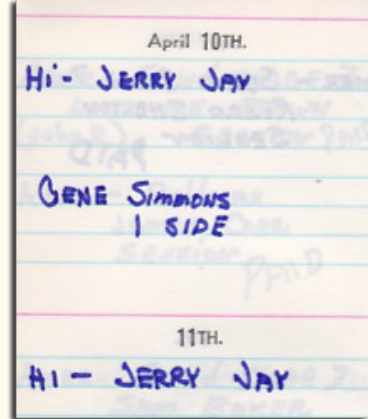 April 10TH.
Hi - JERRY JAY
GENE SIMMONS
1 SIDE
11TH.
HI - JERRY JAY